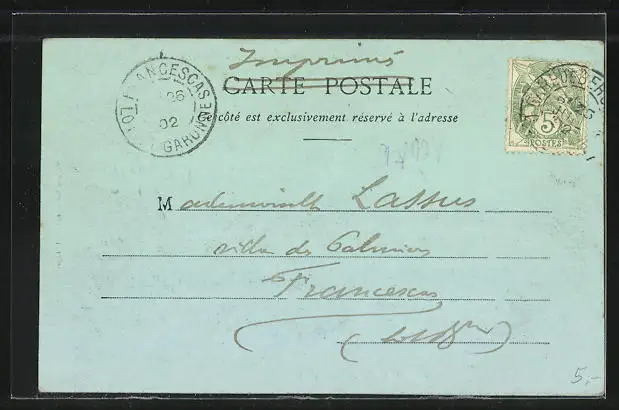 Imprimé
CARTE POSTALE
Ce côté est exclusivement réservé à l'adresse
FRANCESCAS
26
02
LOT ET GARONNE
5
POSTES
Mademoiselle Lassus
villa des Palmiers
Francescas
5,-